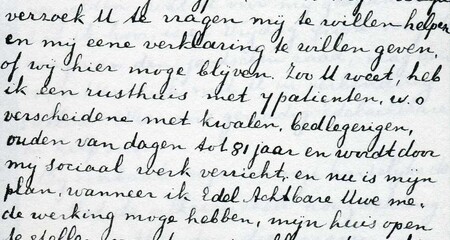 verzoek U te vragen mij te willen helpen
en mij eene verklaring te willen geven,
of wij hier moge blijven. Zoo U weet, heb
ik een rusthuis met 7 patienten, w.o
verscheidene met kwalen, bedlegerigen,
ouden van dagen tot 81 jaar en wordt door
mij sociaal werk verricht, en nu is mijn
plan, wanneer ik Edel Achtbare Uwe me,
de werking moge hebben, mijn huis open
te stellen